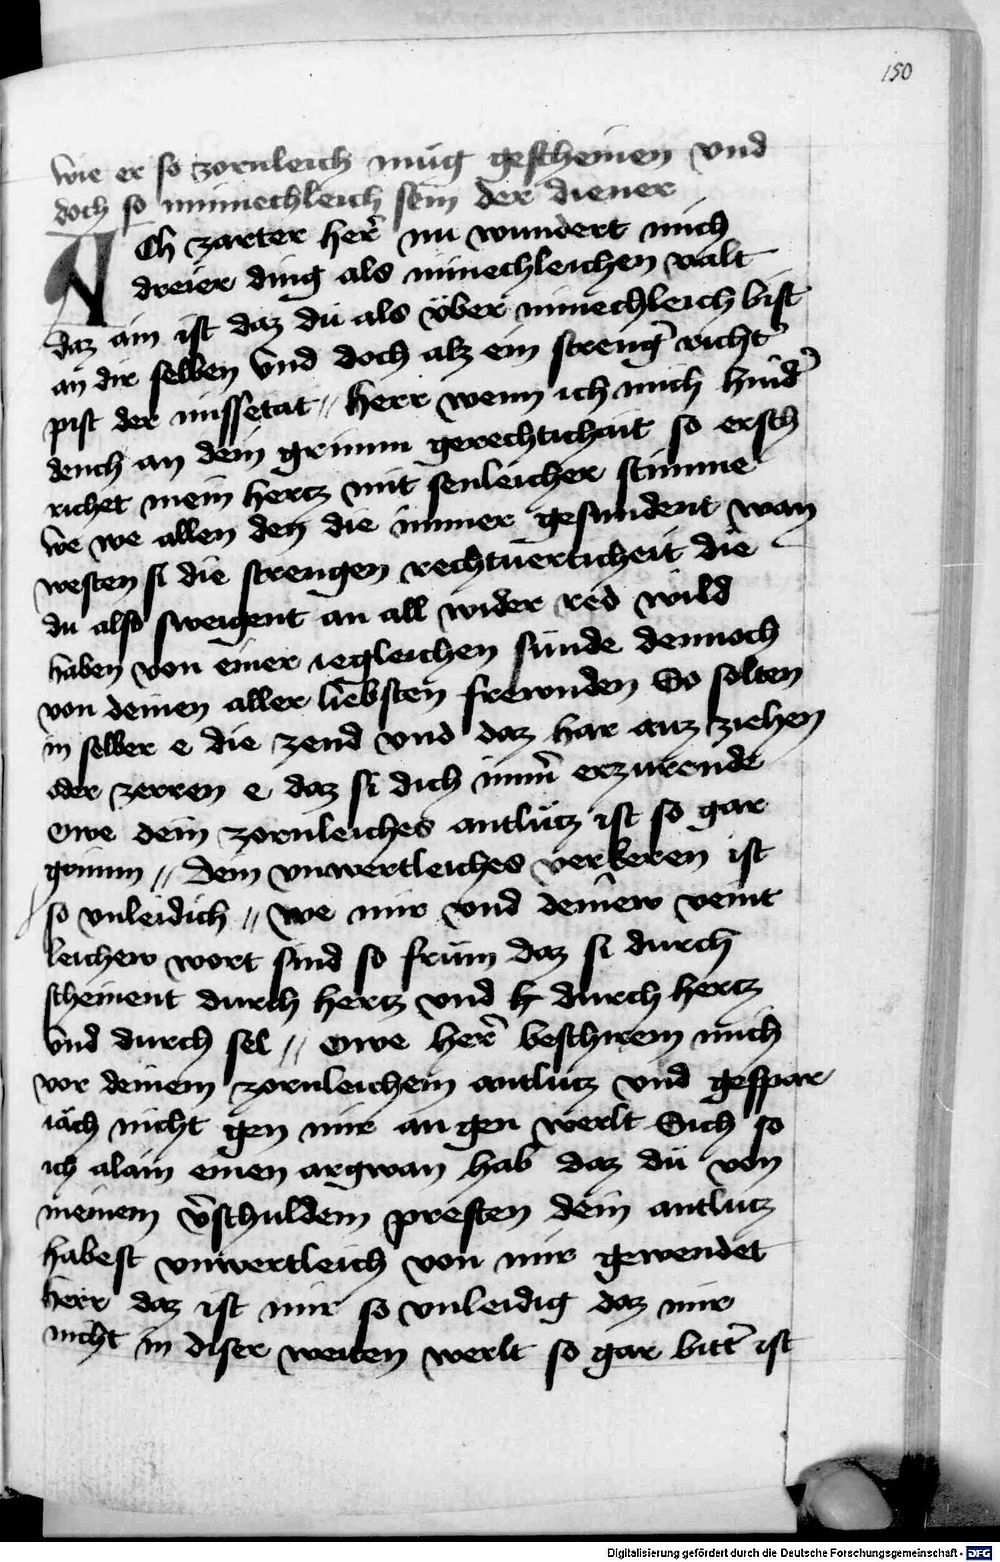 150
wie er so zornleich mug gescheinen vnd
doch so minnechleich sein der diener
ACh zarter her̄ nu wundert mich
dreier ding als minechleichen valt
daz ain ist daz du als über minechleich bist
an dir selben vnd doch alz ein strenḡ richt̄
pist der missetat // herr wenn ich mich hind̄
dench an dein grimm gerechtichait so ersch
richet mein hercz mit senleicher stimme
we we allen den die immer gesundent wan
westen si die strengen rechtuerticheit die
du also sweigent an all wider red wild
haben von einer iegleichen sünde dennoch
von deinen aller liebsten frewnden So solten
in selber e die zend vnd daz har auz ziehen
oder zerren e daz si dich im̄ erzurende
Owe dein zornleiches antlücz ist so gar
grimm // dein vnwertleiches verkeren ist
so vnleidich // we mir vnd deinew veint
leichew wort sind so früm daz si durch
scheinent durch hercz vnd durch hercz
vnd durch sel // Owe her̄ beschirem mich
vor deinem zornleichem antlucz vnd gespar
räch nicht gen mir an gen werlt Sich so
ich alain einen argwan hab daz du von
meinem v̄schuldem presten dein antlucz
habest vnwertleich von mir gewendet
herr daz ist mir so vnleidig daz mir
nicht in diser weiten werlt so gar bitt̄ ist
Digitalisierung gefördert durch die Deutsche Forschungsgemeinschaft - DFG